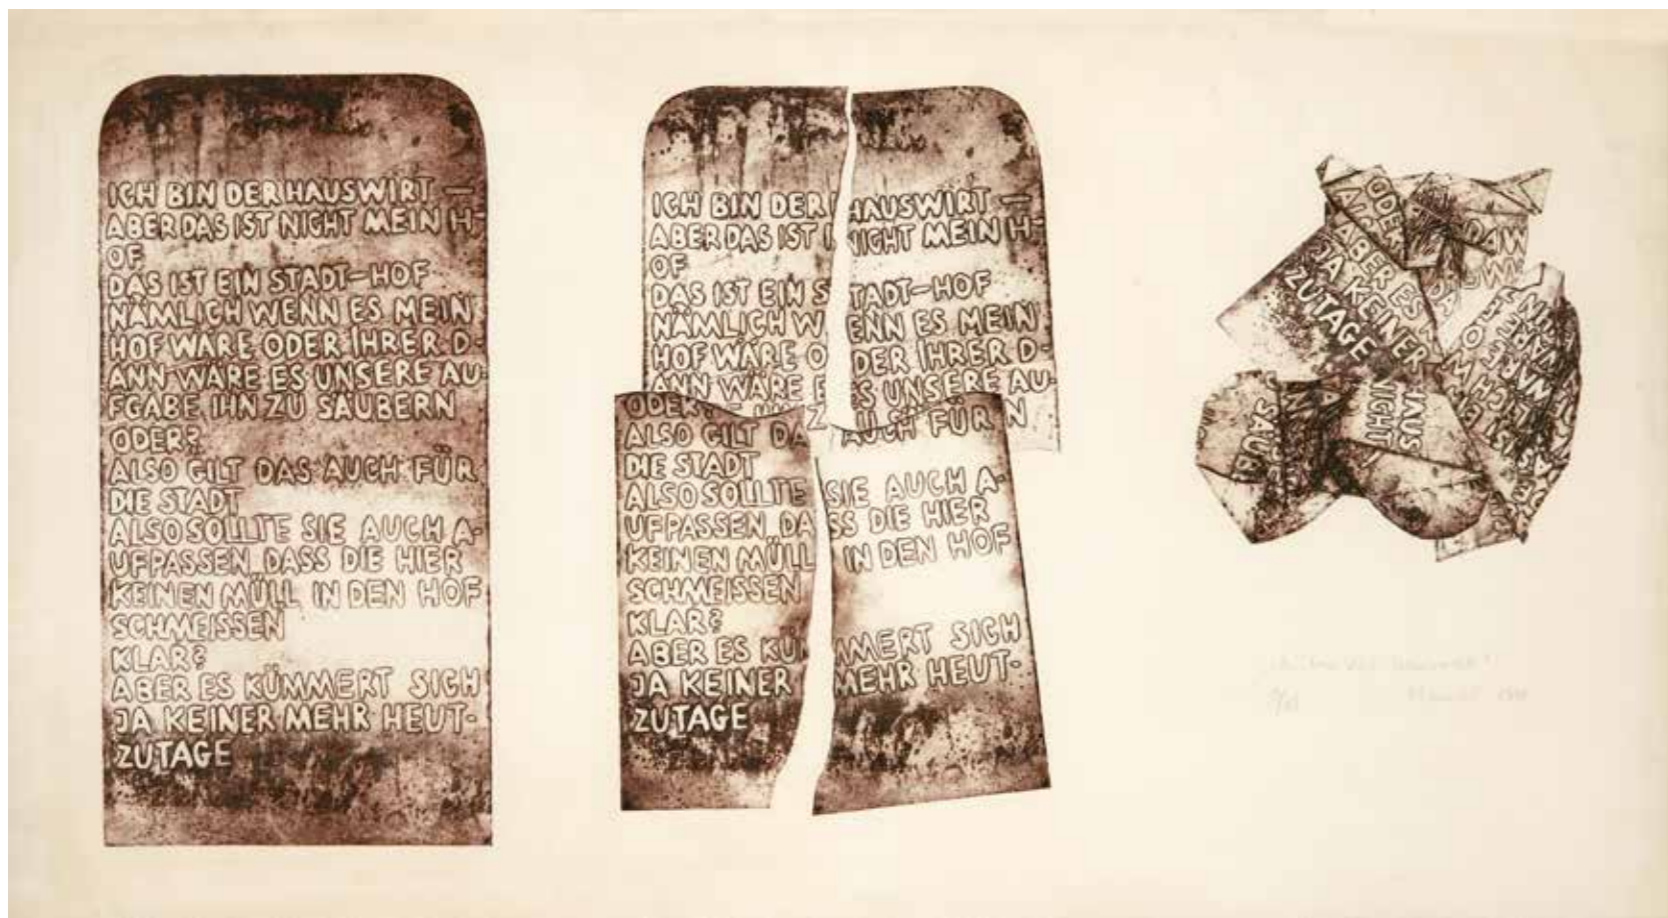 ICH BIN DER HAUSWIRT —
ABER DAS IST NICHT MEIN H-
OF
DAS IST EIN STADT-HOF
NÄMLICH WENN ES MEIN
HOF WÄRE ODER IHRER D-
ANN WÄRE ES UNSERE AU-
FGABE IHN ZU SÄUBERN
ODER?
ALSO GILT DAS AUCH FÜR
DIE STADT
ALSO SOLLTE SIE AUCH A-
UFPASSEN DASS DIE HIER
KEINEN MÜLL IN DEN HOF
SCHMEISSEN
KLAR?
ABER ES KÜMMERT SICH
JA KEINER MEHR HEUT-
ZUTAGE
ICH BIN DER HAUSWIRT —
ABER DAS IST NICHT MEIN H-
OF
DAS IST EIN STADT-HOF
NÄMLICH WENN ES MEIN
HOF WÄRE ODER IHRER D-
ANN WÄRE ES UNSERE AU-
ODER?
ALSO GILT DA AUCH FÜR N
DIE STADT
ALSO SOLLTE SIE AUCH A-
UFPASSEN DASS DIE HIER
KEINEN MÜLL IN DEN HOF
SCHMEISSEN
KLAR?
ABER ES KÜMMERT SICH
JA KEINER MEHR HEUT-
ZUTAGE
ODER
ABER ES
JA KEINER
ZUTAGE
SÄUB
HAUS
NICHT